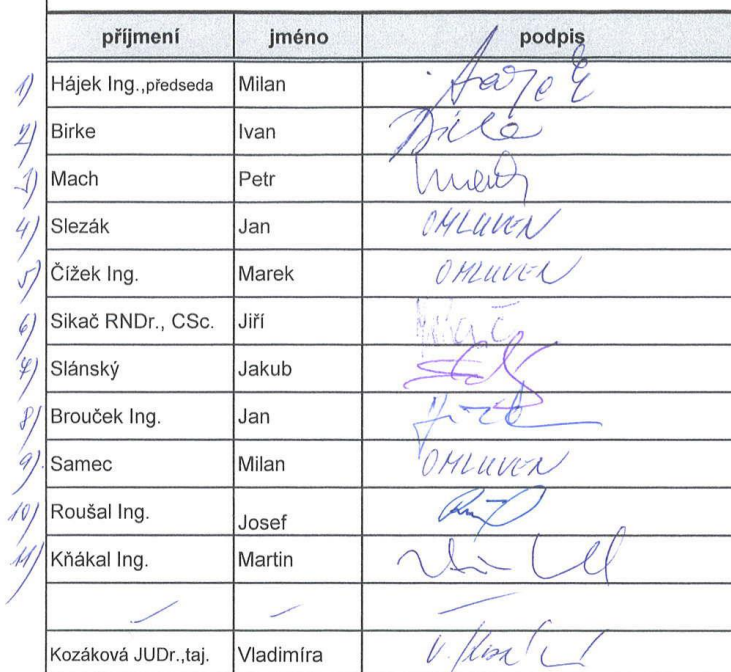 příjmení jméno podpis
1) Hájek Ing.,předseda Milan Hájek
2) Birke Ivan Birke
3) Mach Petr Mach
4) Slezák Jan OMLUVEN
5) Čížek Ing. Marek OMLUVEN
6) Sikač RNDr., CSc. Jiří Sikač
7) Slánský Jakub
8) Brouček Ing. Jan
9) Samec Milan OMLUVEN
10) Roušal Ing. Josef
11) Kňákal Ing. Martin
Kozáková JUDr.,taj. Vladimíra